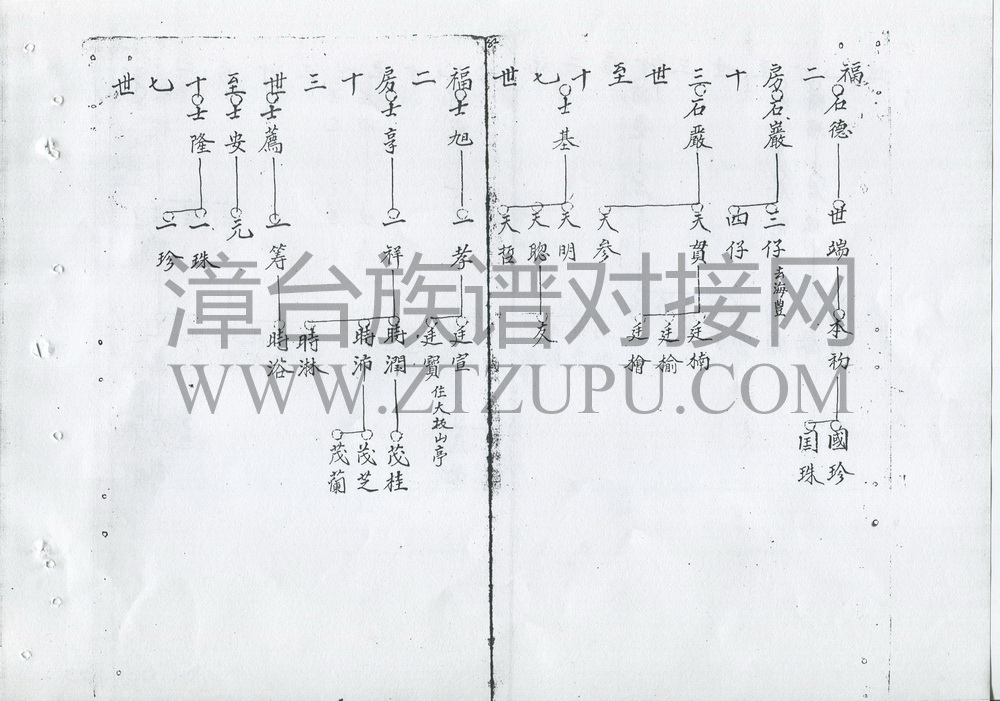 福二房十三世至十七世
石德
石巖
石嚴
士基
世瑞
三仔 去海豐
四仔
天貫
天參
天明
天聰
天哲
本初
廷楠
廷榆
廷檜
友
國珍
国珠
福二房十三世至十七世
士旭
士享
士薦
士安
士隆
一孝
一祥
一筹
元
一珠
一珍
廷宣
廷寶 住大板山亭
時潤
時沛
時淋
時浴
茂桂
茂芝
茂蘭
漳台族谱对接网
WWW.ZTZUPU.COM